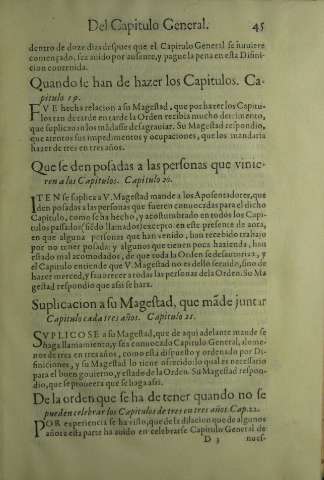 Del Capitulo General. 45
dentro de doze dias despues que el Capitulo General se huuiere
començado, sea auido por ausente, y pague la pena en esta Difini-
cion contenida.
Quando se han de hazer los Capitulos. Ca-
pitulo 19.
FVE hecha relacion a su Magestad, que por hazer los Capitu-
los tan de tarde en tarde la Orden recibia mucho detrimento,
que suplicauan los mãdasse desagrauiar. Su Magestad respondio,
que atentos sus impedimentos y ocupaciones, que los mandaria
hazer de tres en tres años.
Que se den posadas a las personas que vinie-
ren a los Capitulos. Capitulo 20.
ITEN se suplica a V. Magestad mande a los Aposentadores, que
den posadas a las personas que fueren conuocadas para el dicho
Capitulo, como se ha hecho, y acostumbrado en todos los Capi-
tulos passados (siẽdo llamados) excepto en este presente de aora,
en que alguna personas que han venido, han recebido trabajo
por no tener posada: y algunos que tienen poca hazienda, han
estado mal acomodados, de que toda la Orden se desautoriza, y
el Capitulo entiende que V. Magestad no es dello seruido, sino de
hazer merced, y fauorecer a todas las personas de la Orden. Su Ma
gestad respondio que assi se hara.
Suplicacion a su Magestad, que mãde juntar
Capitulo cada tres años. Capitulo 21.
SVPLICOSE a su Magestad, que de aqui adelante mande se
haga llamamiento, y sea conuocado Capitulo General, a lo me-
nos de tres en tres años, como esta dispuesto y ordenado por Di-
finiciones, y su Magestad lo tiene ofrecido: lo qual es necessario
para el buen gouierno, y estado de la Orden. Su Magestad respon-
dio, que se proueera que se haga assi.
De la orden que se ha de tener quando no se
pueden celebrar los Capitulos de tres en tres años. Cap. 22.
POR experiencia se ha visto, que de la dilacion que de algunos
años a esta parte ha auido en celebrarse Capitulo General de
D 3 nues-